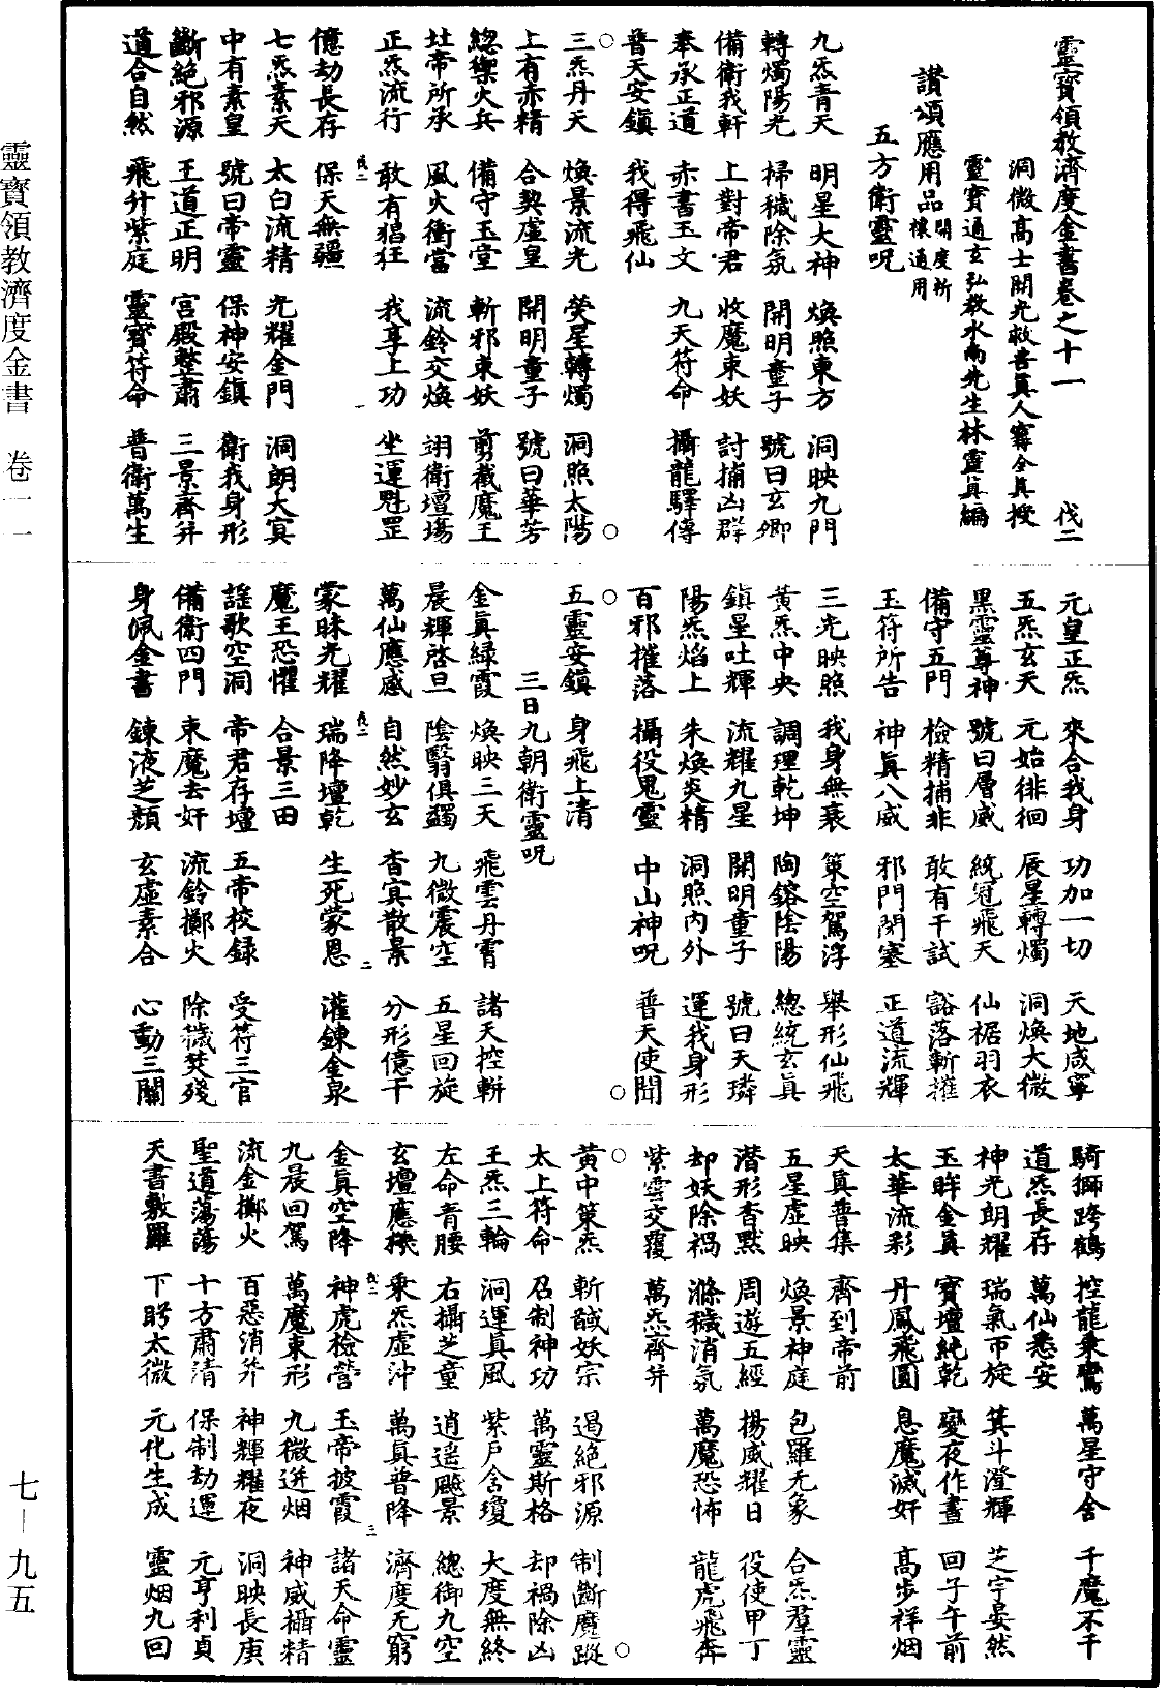 靈寶領教濟度金書卷之十一 伐二
洞微高士開光救苦真人寗全真授
靈寶通玄弘教水南先生林靈真編
讃頌應用品開度祈禳通用
五方衛靈呪
九炁青天 明星大神 煥照東方 洞映九門
轉燭陽光 掃穢除氛 開明童子 號曰玄卿
備衛我軒 上對帝君 收魔束妖 討捕凶群
奉承正道 赤書玉文 九天符命 攝龍驛傳
普天安鎮 我得飛仙
○三炁丹天 煥景流光 熒星轉燭 洞照太陽○
上有赤精 合契虛皇 開明童子 號曰華芳
緫禦火兵 備守玉堂 斬邪束妖 剪截魔王
北帝所承 風火衝當 流鈴交煥 翊衛壇場
正炁流行 敢有猖狂 我享上功 坐運魁罡
億劫長存 保天無疆
七炁素天 太白流精 光耀金門 洞朗太冥
中有素皇 號曰帝靈 保神安鎮 衛我身形
斷絕邪源 王道正明 宮殿整肅 三景齊并
道合自然 飛升紫庭 靈寶符命 普衛萬生
元皇正炁 來合我身 功加一切 天地咸寧
五炁玄天 元始徘徊 辰星轉燭 洞煥太微
黑靈尊神 號曰層威 統冠飛天 仙裾羽衣
備守五門 檢精捕非 敢有干試 豁落斬摧
玉符所告 神真八威 邪門閉塞 正道流輝
三光映照 我身無衰 策空駕浮 舉形仙飛
黃炁中央 調理乾坤 陶鎔陰陽 緫統玄真
鎮星吐輝 流耀九星 開明童子 號曰天璘
陽炁焰上 朱煥炎精 洞照內外 運我身形
百邪摧落 攝役鬼靈 中山神呪 普天使聞
○五靈安鎮 身飛上清○
三日九朝衛靈呪
金真緑霞 煥映三天 飛雲丹霄 諸天控軿
晨輝啓旦 陰翳俱蠲 九微震空 五星回旋
萬仙應感 自然妙玄 杳冥散景 分形億千
蒙昧光耀 瑞降壇乾 生死蒙恩 灌鍊金泉
魔王恐懼 合景三田
謡歌空洞 帝君存壇 五帝校録 受符三官
備衛四門 束魔去奸 流鈴擲火 除穢焚殘
身佩金書 鍊液芝顏 玄虛素合 心動三關
騎獅跨鶴 控龍乘鸞 萬星守舍 千魔不干
道炁長存 萬仙悉安
神光朗耀 瑞氣帀旋 箕斗澄輝 芝宇晏然
玉眸金真 寶壇純乾 變夜作晝 回子午前
太華流彩 丹鳳飛圓 息魔滅奸 高步祥烟
天真普集 齊到帝前
五星虛映 煥景神庭 包羅无象 合炁羣靈
潛形杳默 周遊五經 揚威耀日 役使甲丁
却妖除禍 滌穢消氛 萬魔恐怖 龍虎飛奔
紫雲交覆 萬炁齊并
○黃中策炁 斬馘妖宗 遏絕邪源 制斷魔蹤○
太上符命 召制神功 萬靈斯格 却禍除凶
王炁三輪 洞運真風 紫戶含瓊 大度無終
左命青腰 右攝芝童 逍遙飈景 緫御九空
玄壇應機 乘炁虛沖 萬真普降 濟度无窮
金真空降 神虎檢營 玉帝披霞 諸天命靈
九晨回駕 萬魔束形 九微迸烟 神威攝精
流金擲火 百惡消并 神輝耀夜 洞映長庚
聖道蕩蕩 十方肅清 保制劫運 元亨利貞
天書敷羅 下眄太微 元化生成 靈烟九回
靈寶領教濟度金書 卷一一
七—九五